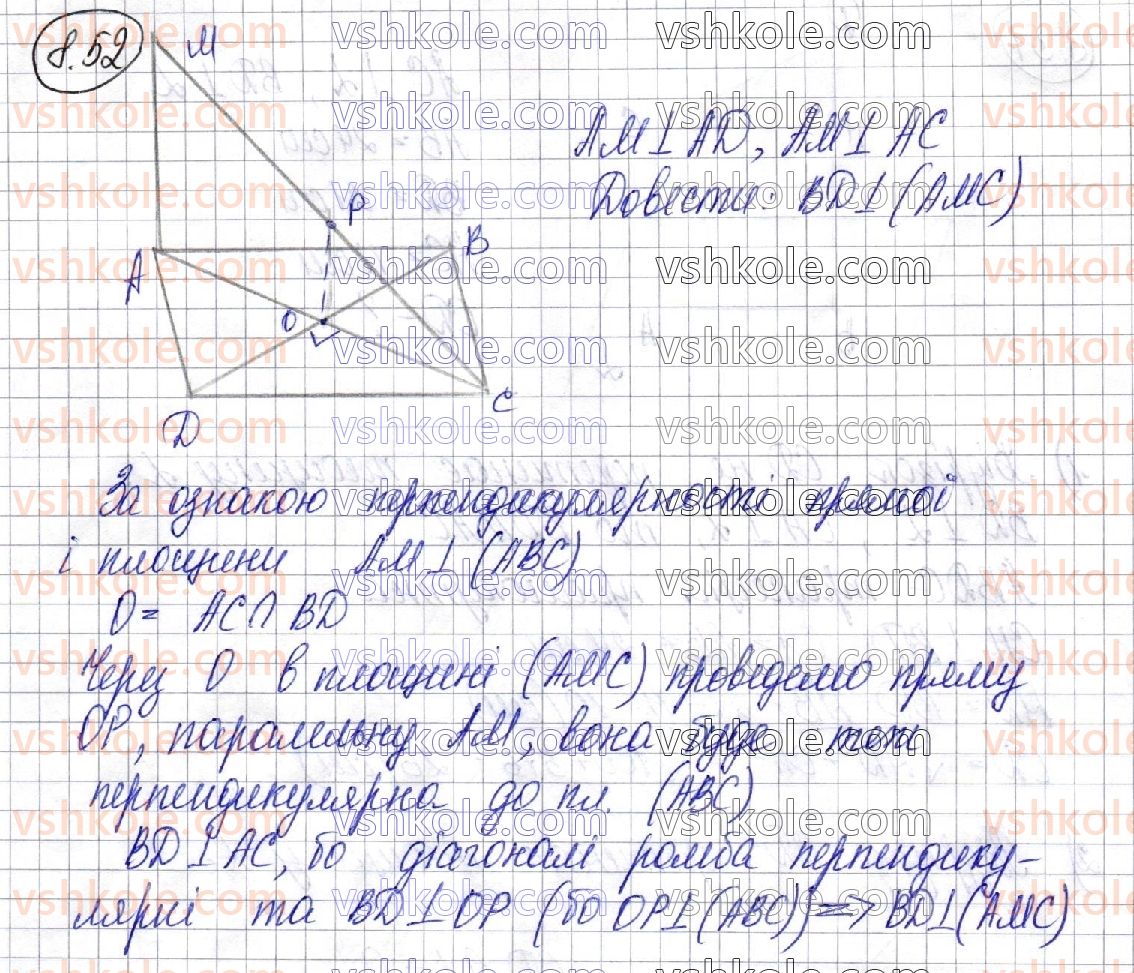 8.52
M
AM⊥AD, AM⊥AC
Довести: BD⊥(AMC)
P
A
B
O
D
C
За ознакою перпендикулярності прямої
і площини AM⊥(ABC)
O = AC∩BD
Через O в площині (AMC) проведемо пряму
OP, паралельну AM, вона буде теж
перпендикулярна до пл. (ABC)
BD⊥AC, бо діагоналі ромба перпендику-
лярні та BD⊥OP (бо OP⊥(ABC)) => BD⊥(AMC)
vshkole.com